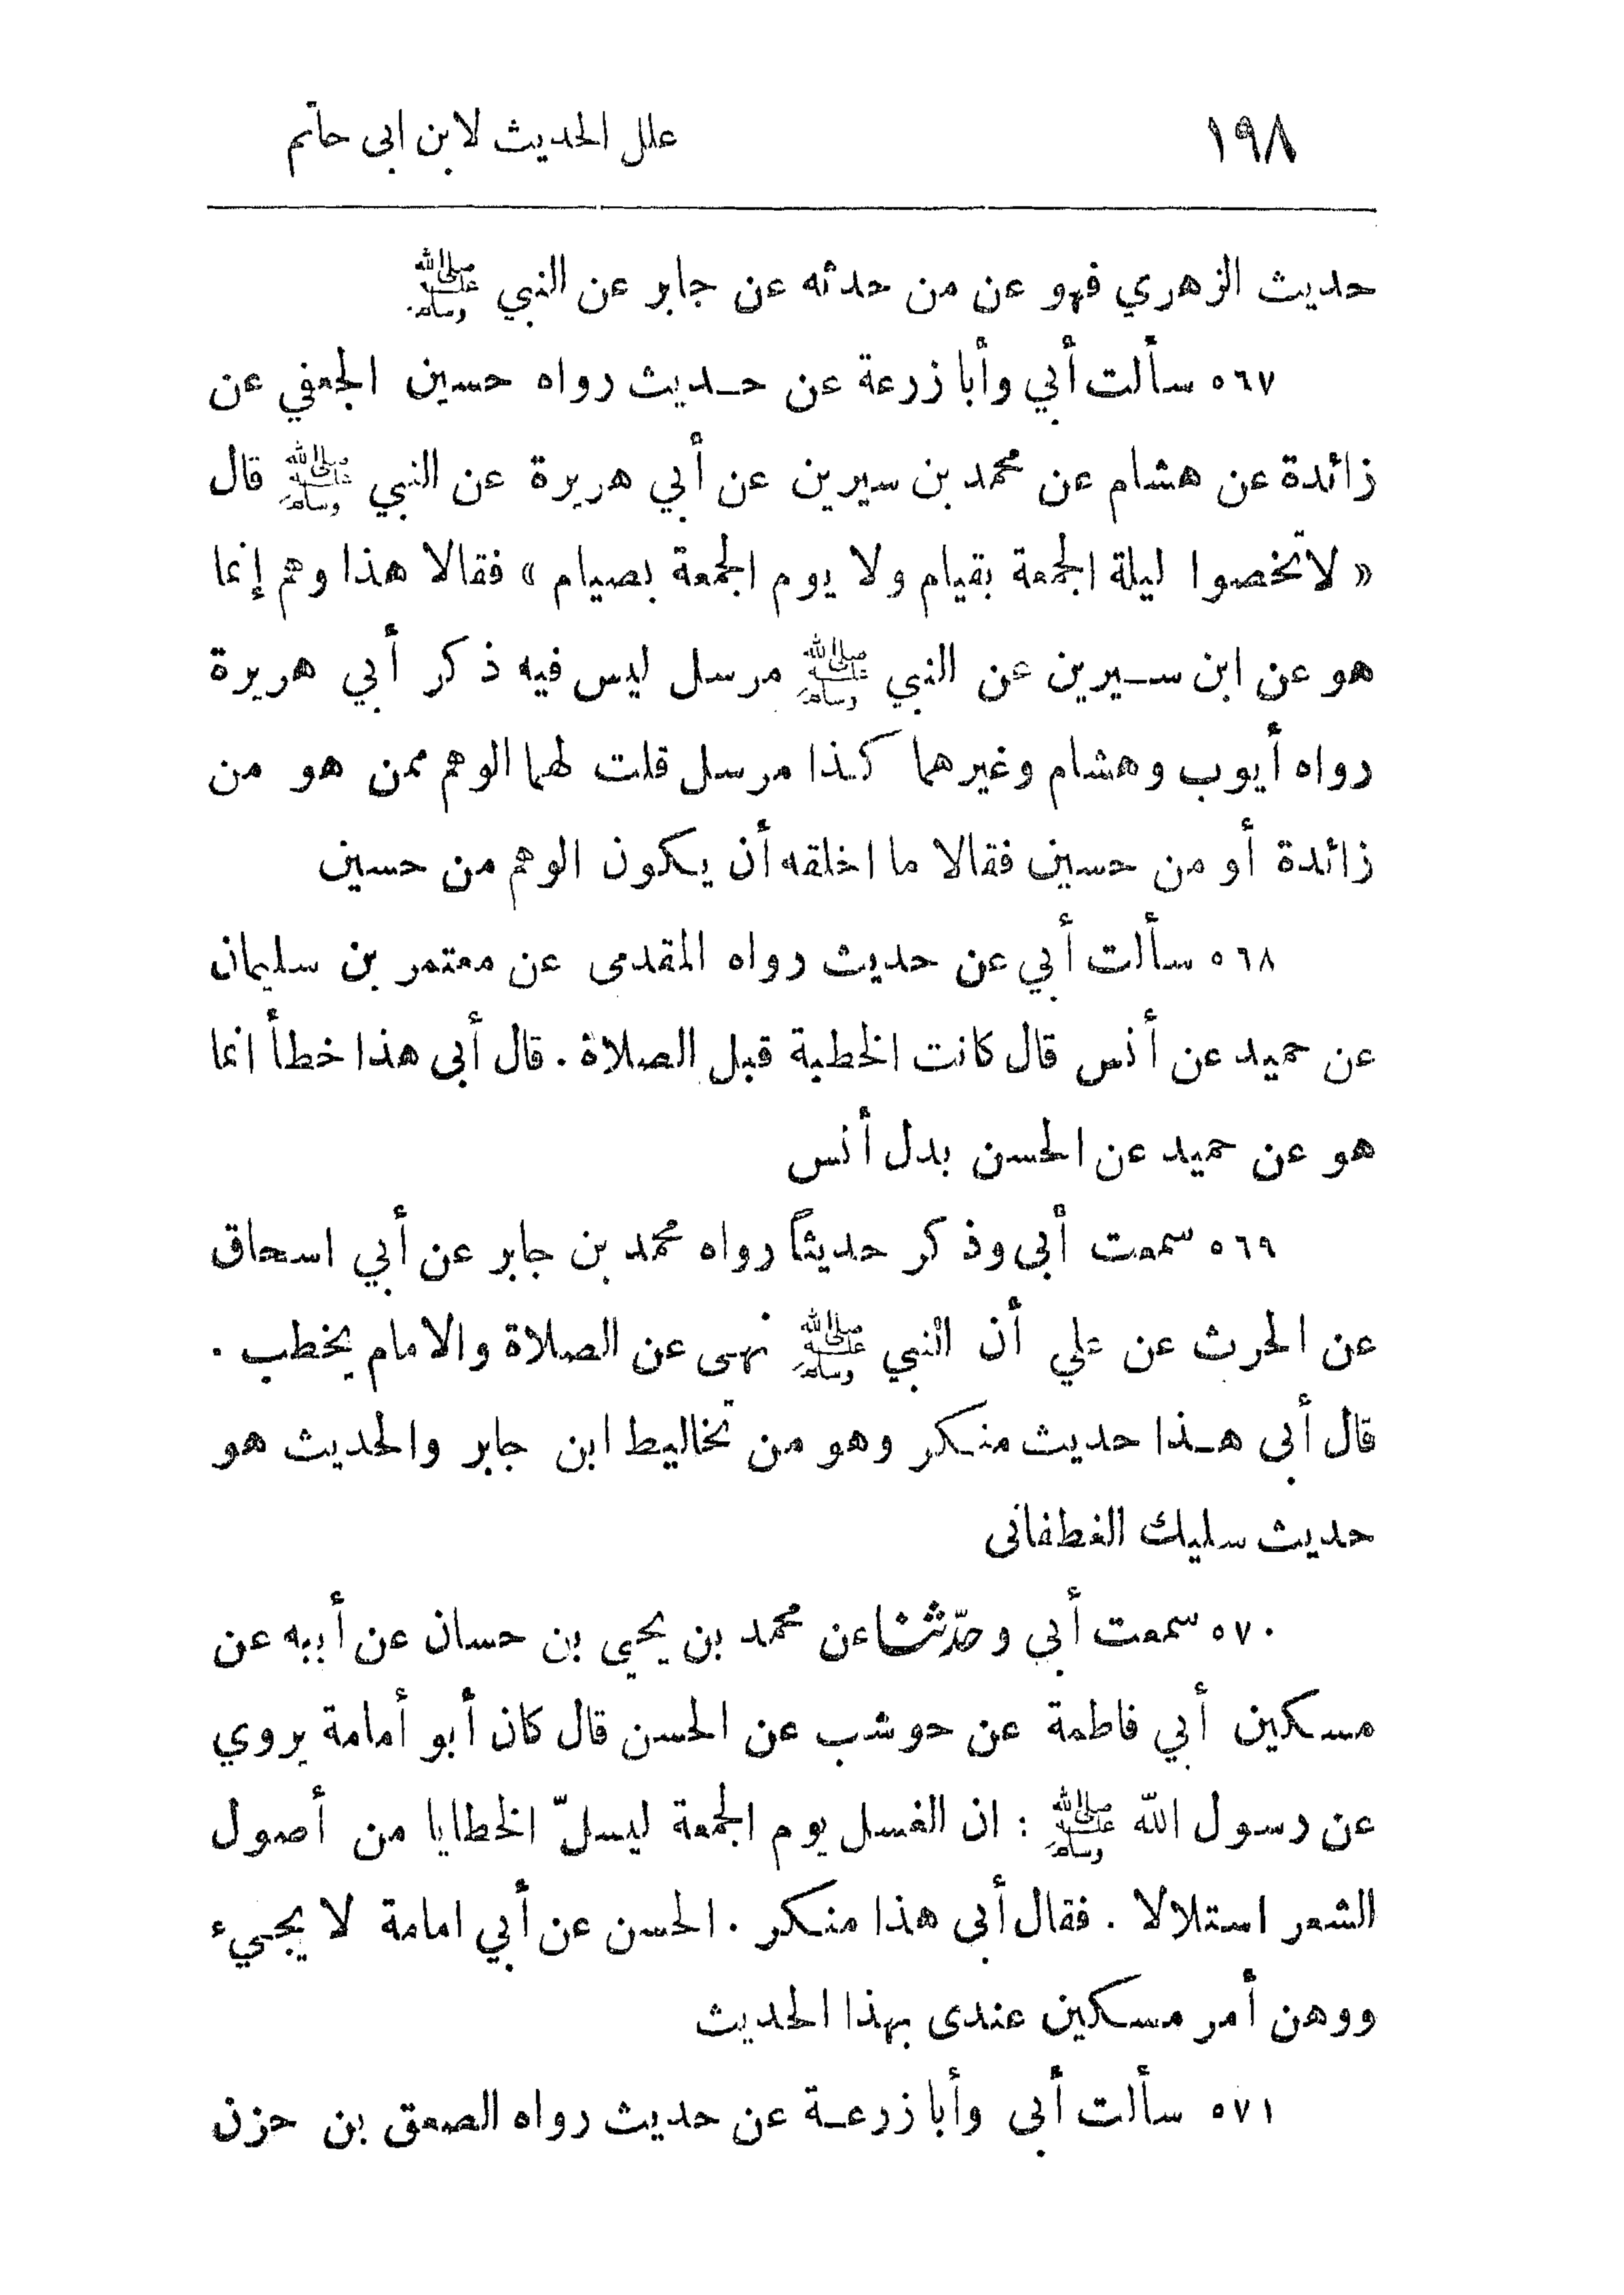 ١٩٨ علل الحديث لابن ابى حاتم
حديث الزهري فهو عن من حدثه عن جابر عن النبي ﷺ.
٥٦٧ سألت أبي وأبا زرعة عن حديث رواه حسين الجعفي عن
زائدة عن هشام عن محمد بن سيرين عن أبي هريرة عن النبي ﷺ قال
« لاتخصوا ليلة الجمعة بقيام ولا يوم الجمعة بصيام » فقالا هذا وهم إنما
هو عن ابن سيرين عن النبي ﷺ مرسل ليس فيه ذكر أبي هريرة
رواه أيوب وهشام وغيرهما كذا مرسل قلت لهما الوهم ممن هو من
زائدة أو من حسين فقالا ما اخلقه أن يكون الوهم من حسين
٥٦٨ سألت أبي عن حديث رواه المقدمى عن معتمر بن سليمان
عن حميد عن أنس قال كانت الخطبة قبل الصلاة . قال أبى هذا خطأ انما
هو عن حميد عن الحسن بدل أنس
٥٦٩ سمعت أبى وذكر حديثاً رواه محمد بن جابر عن أبي اسحاق
عن الحرث عن علي أن النبي ﷺ نهى عن الصلاة والامام يخطب .
قال أبى هذا حديث منكر وهو من تخاليط ابن جابر والحديث هو
حديث سليك الغطفانى
٥٧٠ سمعت أبي وحدّثنا عن محمد بن يحيى بن حسان عن أبيه عن
مسكين أبي فاطمة عن حوشب عن الحسن قال كان أبو أمامة يروي
عن رسول الله ﷺ : ان الغسل يوم الجمعة ليسلّ الخطايا من أصول
الشعر استلالا . فقال أبى هذا منكر . الحسن عن أبي امامة لا يجيء
ووهن أمر مسكين عندى بهذا الحديث
٥٧١ سألت أبى وأبا زرعة عن حديث رواه الصعق بن حزن